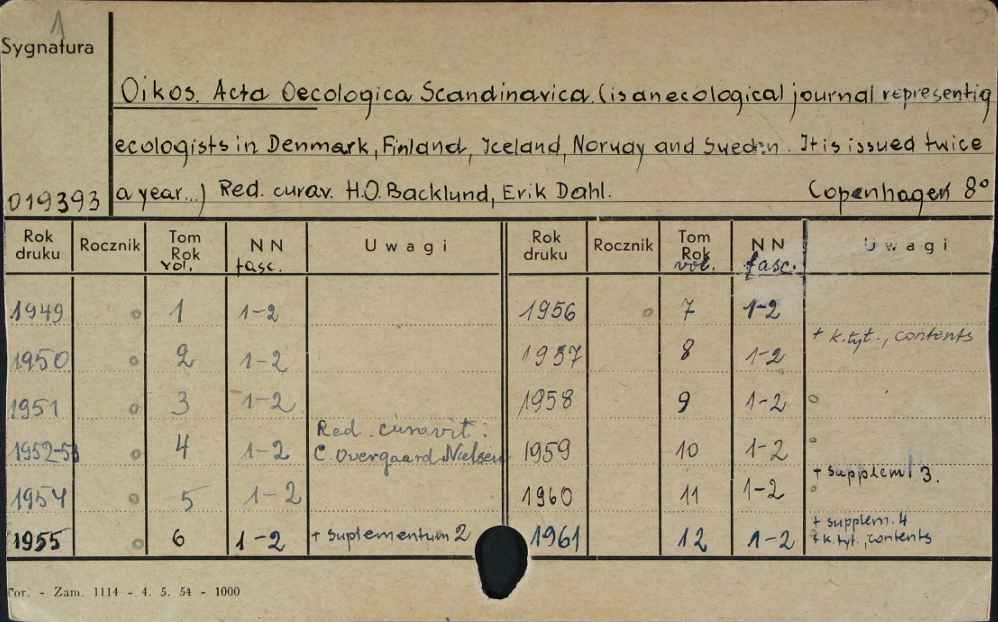 1
Sygnatura
Oikos. Acta Oecologica Scandinavica. (is an ecological journal representig
ecologists in Denmark, Finland, Iceland, Norway and Sweden. It is issued twice
019393 a year...) Red. curav. H.O. Backlund, Erik Dahl. Copenhagen 8°
Rok druku Rocznik Tom Rok vol. NN fasc. Uwagi Rok druku Rocznik Tom Rok vol. NN fasc. Uwagi
1949 o 1 1-2 1956 o 7 1-2
1950 2 1-2 1957 8 1-2 + k.tyt., contents
1951 o 3 1-2 1958 9 1-2 o
1952-53 o 4 1-2 Red. curavit: C. Overgaard Nielsen 1959 10 1-2 o
1954 o 5 1-2 1960 11 1-2 + supplem 3. o
1955 o 6 1-2 + suplementum 2 1961 12 1-2 + supplem. 4 + k.tyt., contents
Tor. - Zam. 1114 - 4. 5. 54 - 1000